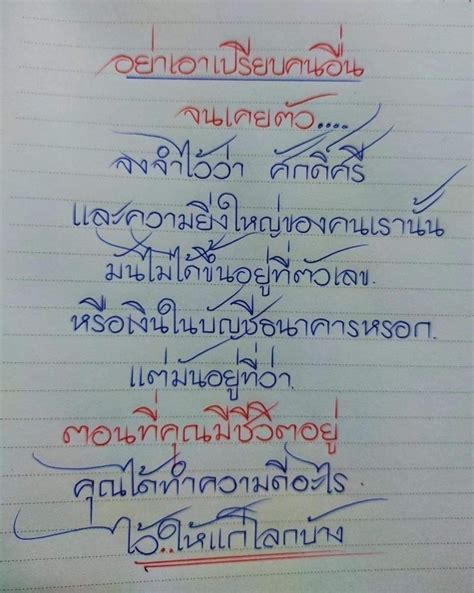 อย่าเอาเปรียบคนอื่น
จนเคยตัว....
จงจำไว้ว่า ศักดิ์ศรี
และความยิ่งใหญ่ของคนเรานั้น
มันไม่ได้ขึ้นอยู่ที่ตัวเลข.
หรือเงินในบัญชีธนาคารหรอก.
แต่มันอยู่ที่ว่า.
ตอนที่คุณมีชีวิตอยู่
คุณได้ทำความดีอะไร.
ไว้..ให้แก่โลกบ้าง